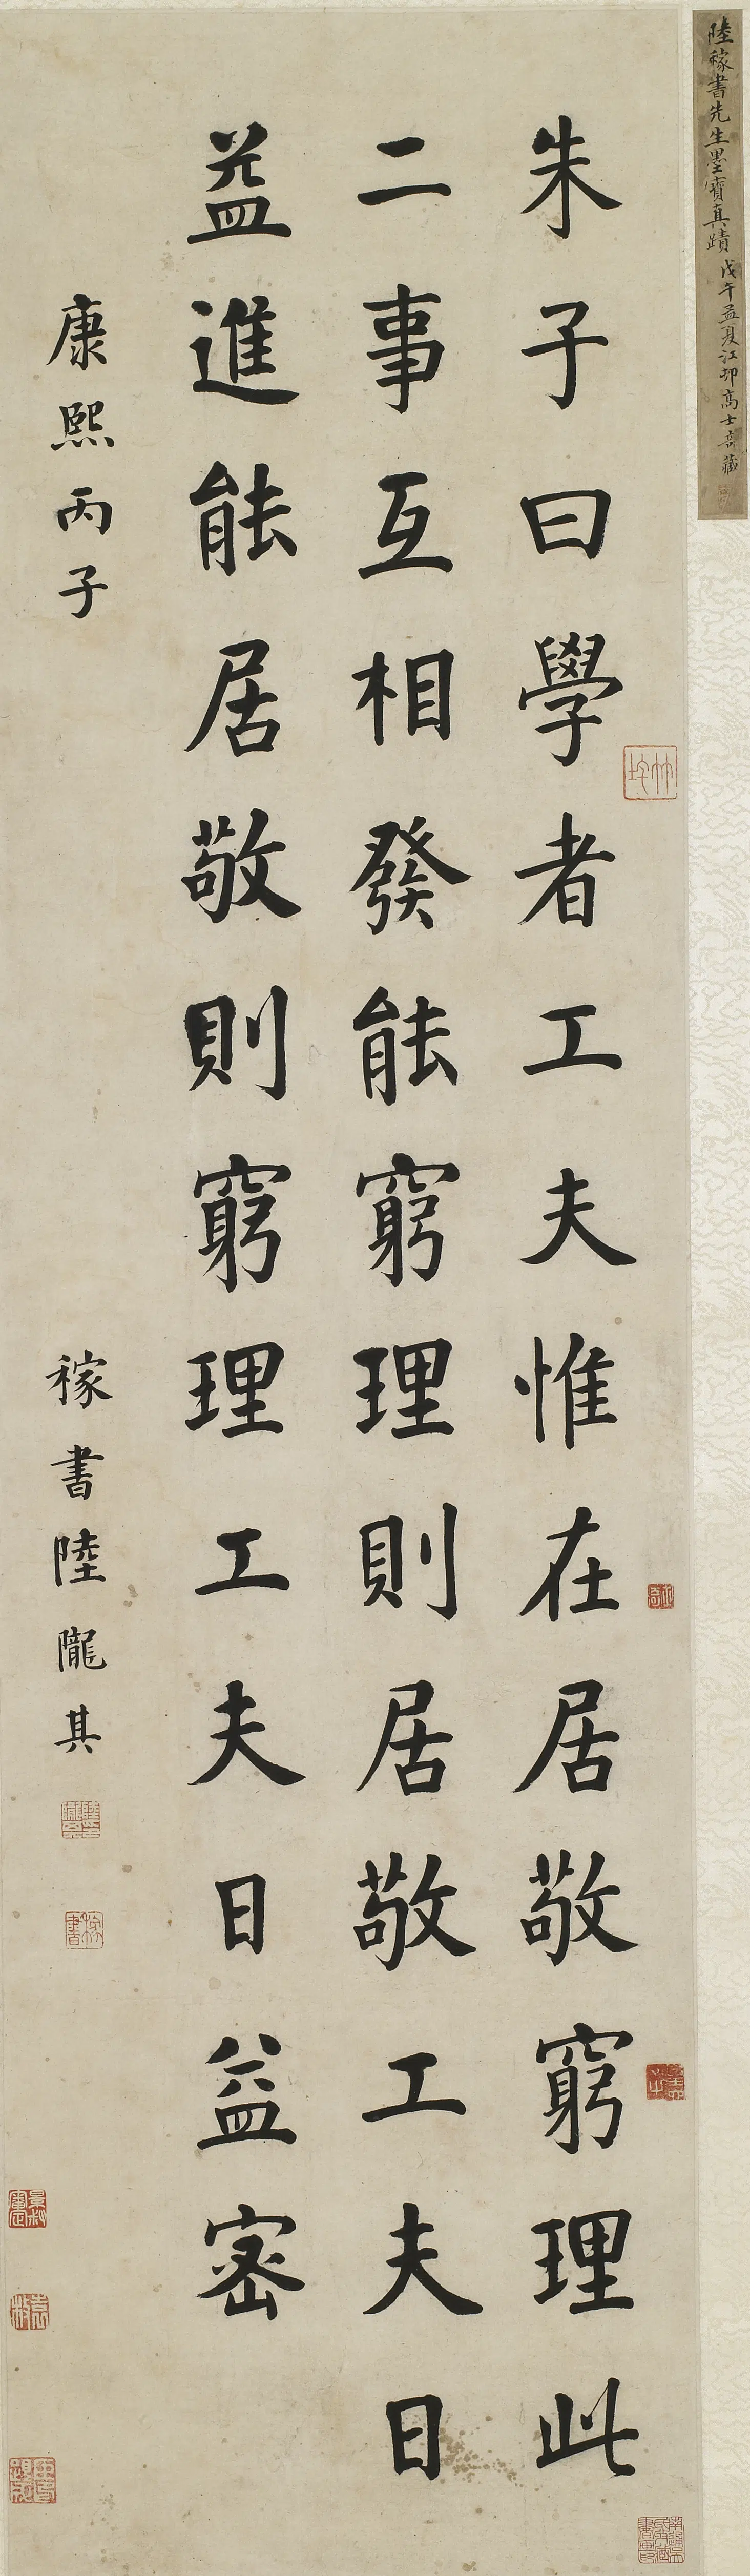 陸稼書先生墨寶真蹟
戊午孟夏江邨高士奇藏
朱子曰學者工夫惟在居敬窮理此
二事互相發能窮理則居敬工夫日
益進能居敬則窮理工夫日益密
康熙丙子
稼書陸隴其